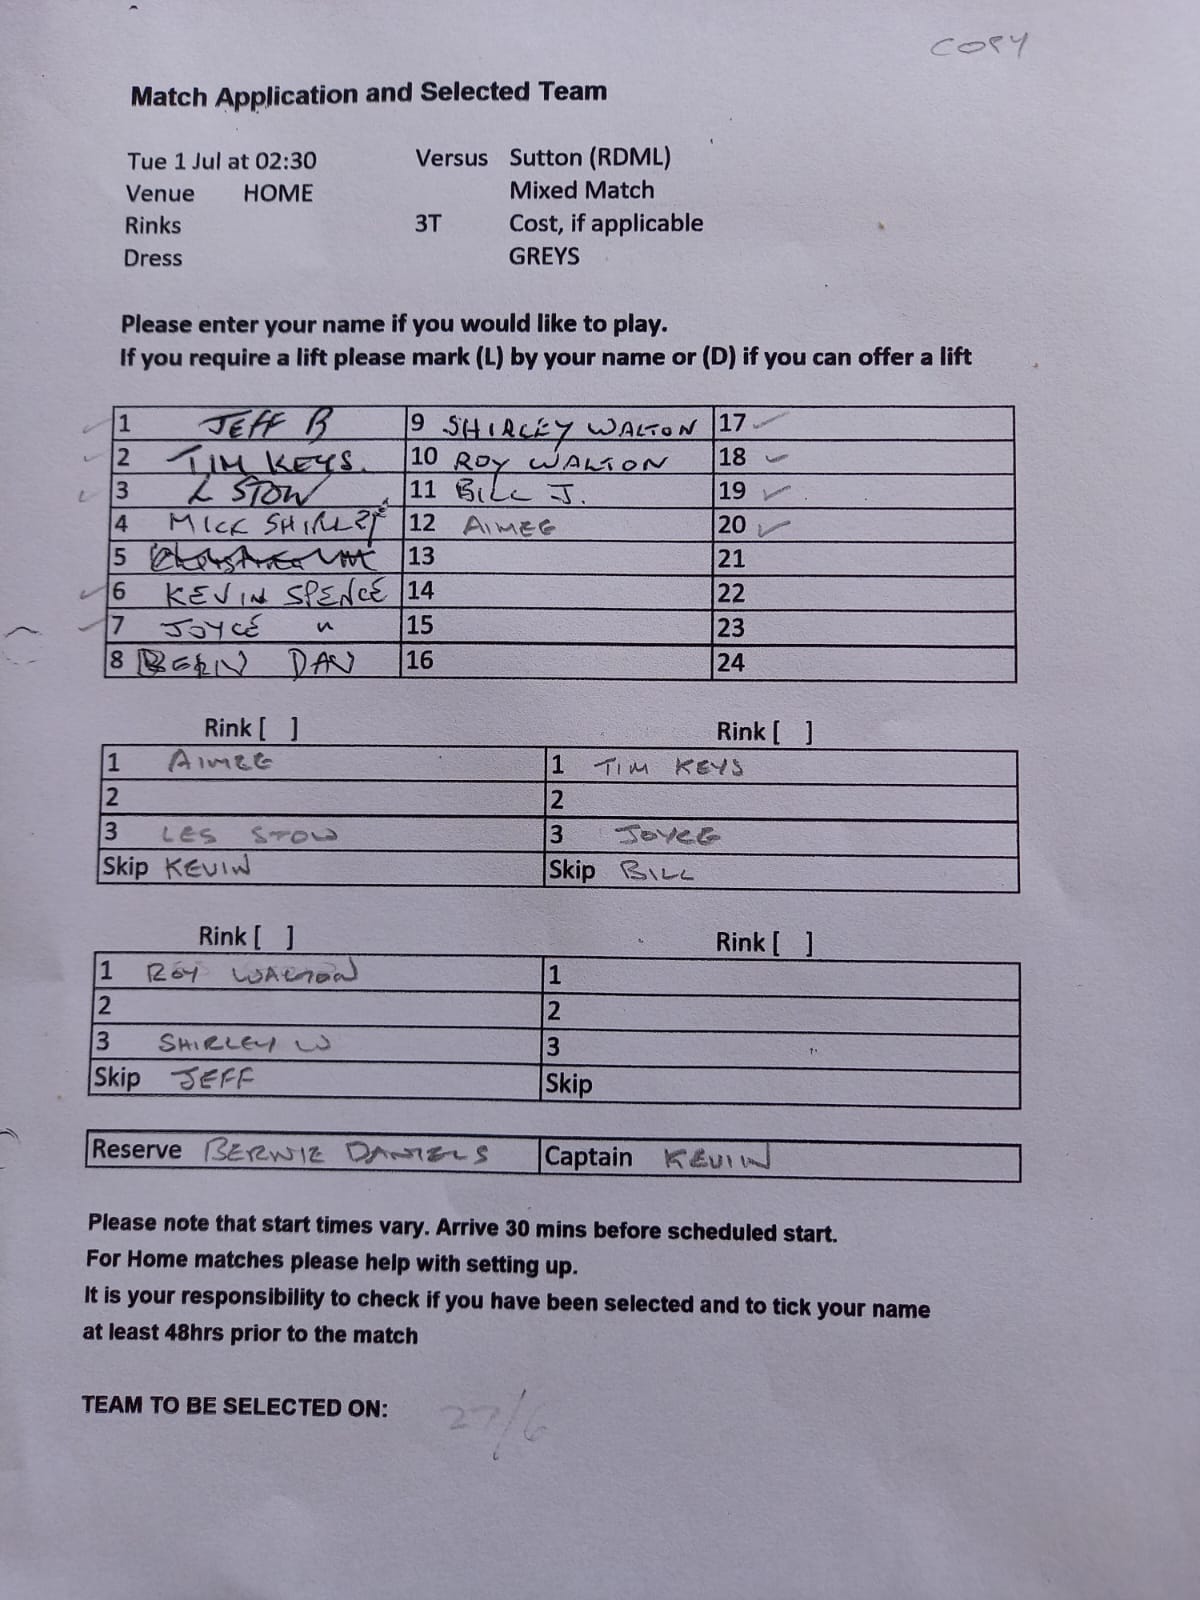 COPY
Match Application and Selected Team
Tue 1 Jul at 02:30 Versus Sutton (RDML)
Venue HOME Mixed Match
Rinks 3T Cost, if applicable
Dress GREYS
Please enter your name if you would like to play.
If you require a lift please mark (L) by your name or (D) if you can offer a lift
1 JEFF B 9 SHIRLEY WALTON 17
2 TIM KEYS. 10 ROY WALTON 18
3 L STOW 11 BILL J. 19
4 MICK SHIRLEY 12 AIMEE 20
5 13 21
6 KEVIN SPENCE 14 22
7 JOYCE " 15 23
8 BERN DAN 16 24
Rink [ ] Rink [ ]
1 AIMEE 1 TIM KEYS
2 2
3 LES STOW 3 JOYCE
Skip KEVIN Skip BILL
Rink [ ] Rink [ ]
1 ROY WALTON 1
2 2
3 SHIRLEY W 3
Skip JEFF Skip
Reserve BERNIE DANIELS Captain KEVIN
Please note that start times vary. Arrive 30 mins before scheduled start.
For Home matches please help with setting up.
It is your responsibility to check if you have been selected and to tick your name
at least 48hrs prior to the match
TEAM TO BE SELECTED ON: 27/6